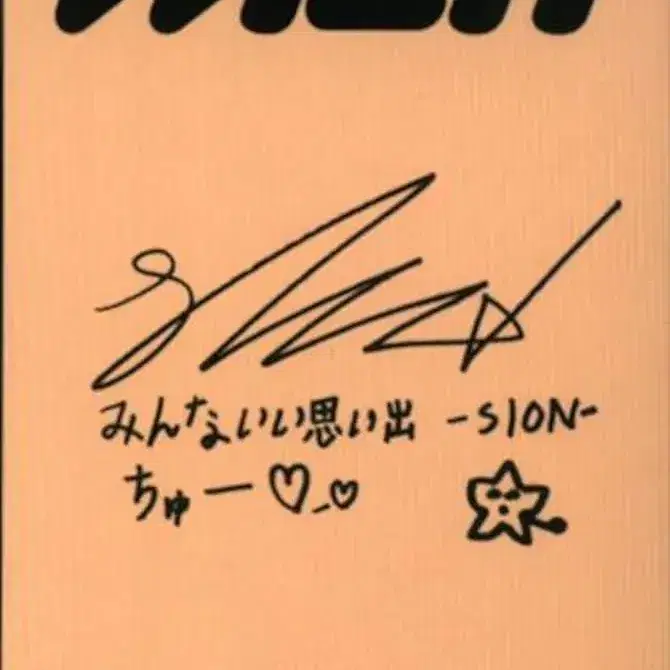 みんないい思い出 -SION-
ちゅー♡_♡